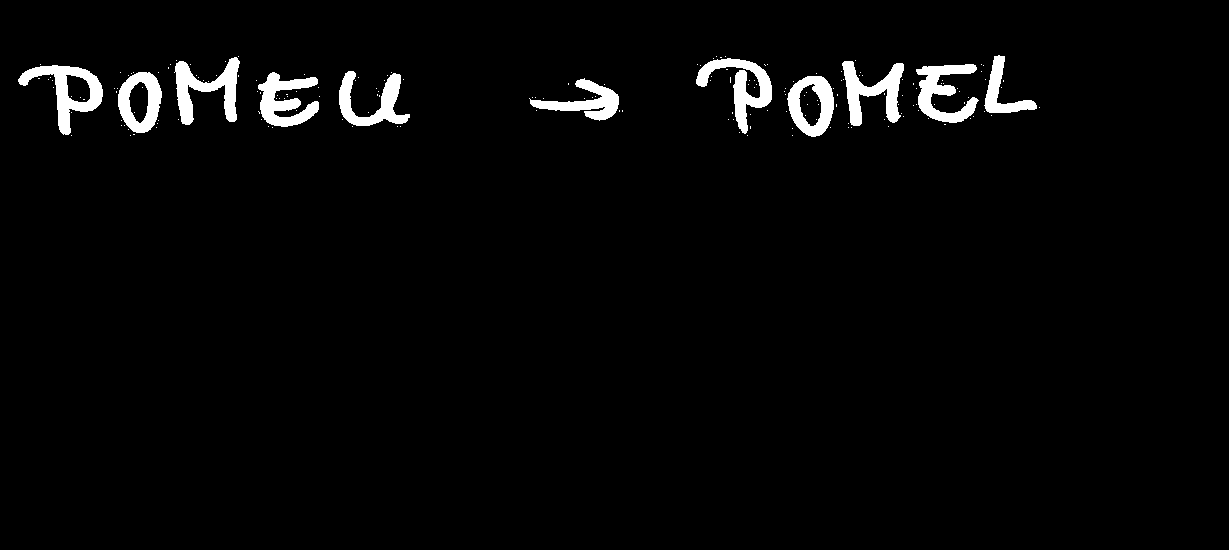 POMEU → POMEL